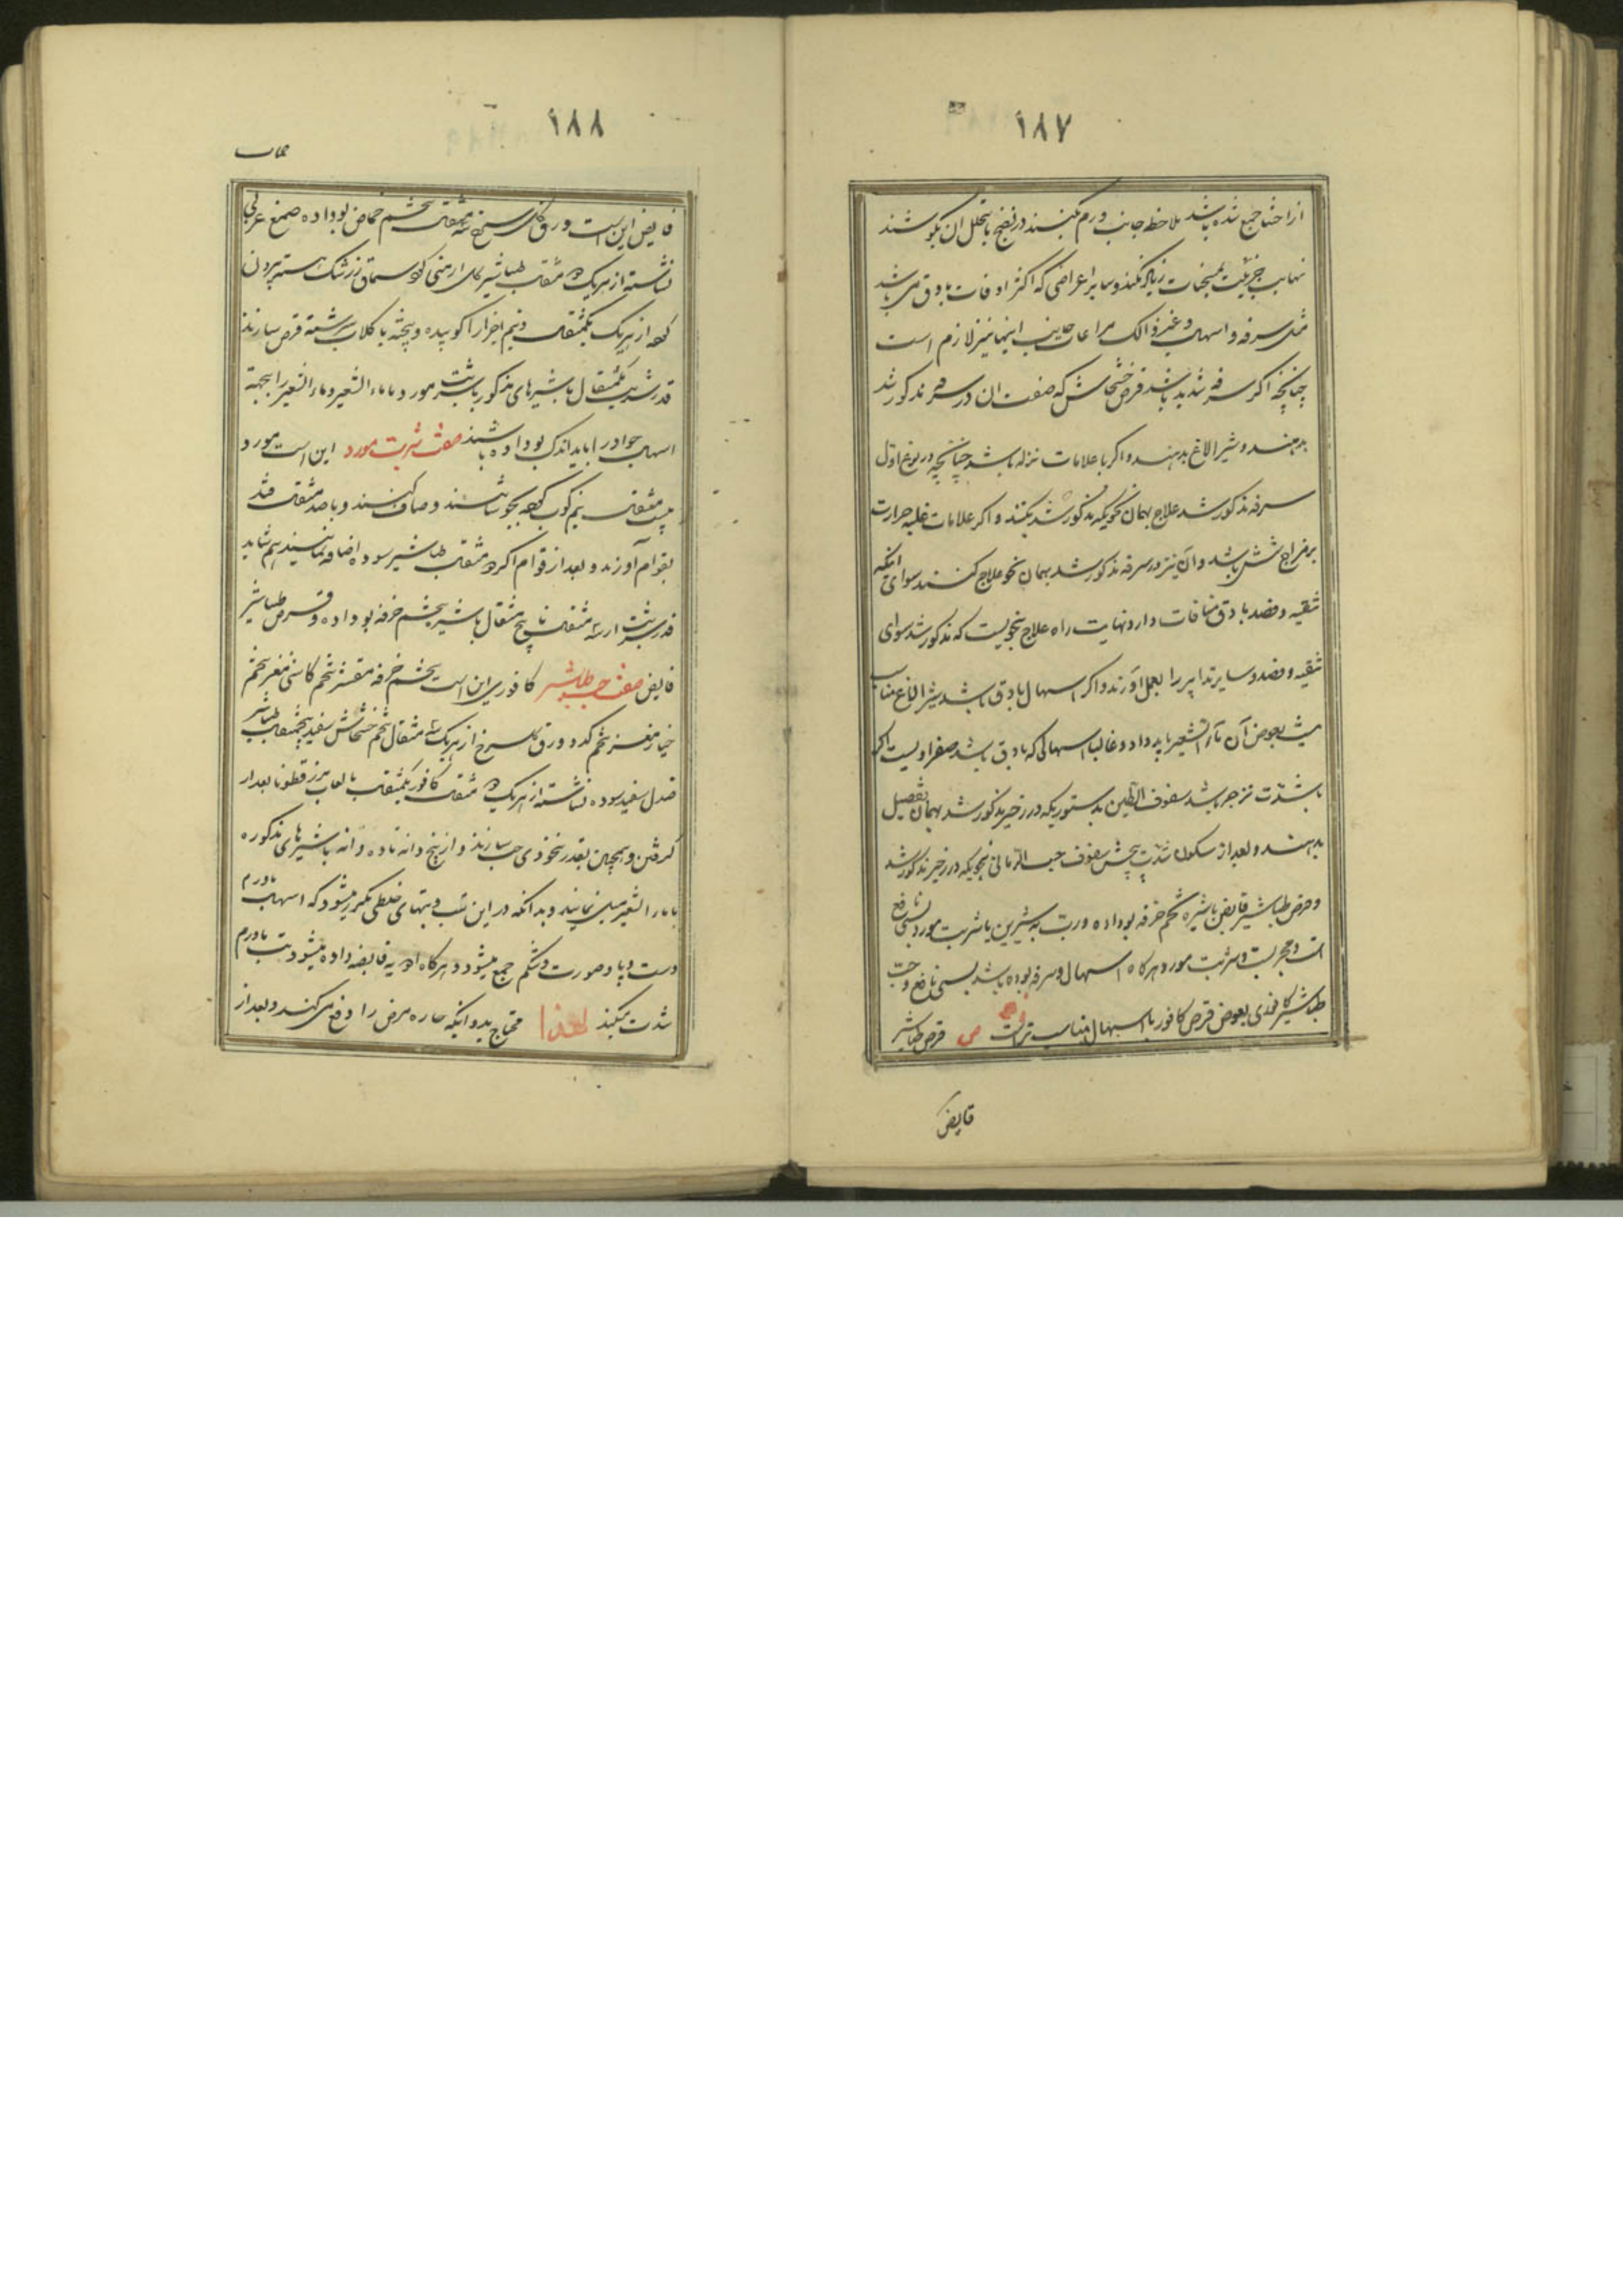 ۱۸۷
از احشا جمع شده باشد ملاحظه جانب ورم بکنند در نضج یا تحلل ان بکوشند
نهایت جرئیت بمسخنات زیاد نکند و سایر اعراضی که اکثر اوقات با دق می باشد
مثل سرفه و اسهال و غیر ذالک مراعات جانب اینها نیز لازم است
چنانچه اکر سرفه شدید باشد قرص خشخاش که صفت ان در سرفه مذکور شد
بدهند و شیر الاغ بدهند و اکر با علامات نزله باشد چنانچه در نوع اول
سرفه مذکور شد علاج بهمان نحویکه مذکور شد بکنند و اکر علامات غلبه حرارت
بر مزاج شش باشد و آن نیز در سرفه مذکور شد بهمان نحو علاج کنند سوای اینکه
تنقیه و فصد با دق منافات دارد نهایت راه علاج نحویست که مذکور شد سوای
تنقیه و فصد و سایر تدابیر را بعمل آورند و اکر اسهال با دق باشد شیر الاغ مناسب
بعوض آن ماء الشعیر باید داد و غالبا اسهالی که با دق باشد صفراویست اکر
باشدت زحیر باشد سفوف الطین بدستوریکه در زحیر مذکور شد بهمان تفصیل
بدهند و بعد از سکون شدت پیچش سفوف حب الرمانی نحویکه در زحیر مذکور شد
و قرص طباشیر قابض با شیره تخم خرفه بوداده و رب به شیرین یا شربت مورد بسی نافع
است و مجربست و شربت مورد هرکاه اسهال و سرفه بوده باشد بسی نافع و حب
طباشیر کافوری بعوض قرص کافور با اسهال مناسب تر است ص قرص طباشیر
قابض
۱۸۸
قابض این است ورق کل سرخ سه مثقال تخم حماض بوداده صمغ عربی
نشاسته از هریک دو مثقال طباشیر کل ارمنی سماق زرشک هسته بیرون
از هریک یکمثقال و نیم اجزا را کوبیده و پخته با کلاب سرشته قرص سازند
قدر شربت یکمثقال با شیرهای مذکور با شربت مورد و با ماء الشعیر و ماء الشعیر را بجهة
اسهال جو را باید اندک بوداده باشند صفت شربت مورد این است مورد
بیست مثقال نیم کوب بجوشانند و صاف کنند و با صد مثقال قند
بقوام آورند و بعد از قوام اکر دو مثقال طباشیر سوده اضافه نمایند هم شاید
قدر شربت از سه مثقال تا پنج مثقال با شیره تخم خرفه بوداده و قرص طباشیر
قابض صفت حب طباشیر کافوری این است تخم خرفه مقشر تخم کاسنی مغز تخم
خیار مغز تخم کدو ورق کل سرخ از هریک سه مثقال تخم خشخاش سفید پنجمثقال طباشیر
صندل سفید سوده نشاسته از هریک دو مثقال کافور یکمثقال بالعاب بزرقطونا بعد از
کرفتن و پیچیدن بقدر نخودی حب سازند و از پنج دانه تا ده دانه با شیرهای مذکوره
با ماء الشعیر میل نمایند و بدانکه در این تب و تبهای خلطی مکرر میشود که اسهال با ورم
دست و پا و صورت و شکم جمع میشود و هرکاه ادویه قابضه داده میشود تب با ورم
شدت میکند لهذا محتاج بدوائیکه چاره مرض را دفع می کند و بعد از